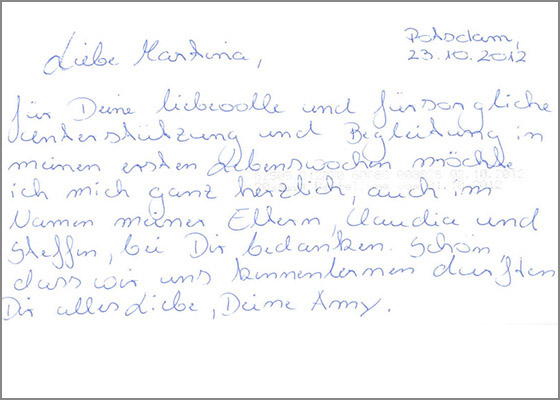 Potsdam,
23.10.2012
Liebe Martina,
für Deine liebevolle und fürsorgliche
Unterstützung und Begleitung in
meinen ersten Lebenswochen möchte
ich mich ganz herzlich, auch im
Namen meiner Eltern, Claudia und
Steffen, bei Dir bedanken. Schön,
dass wir uns kennenlernen durften
Dir alles Liebe, Deine Amy.